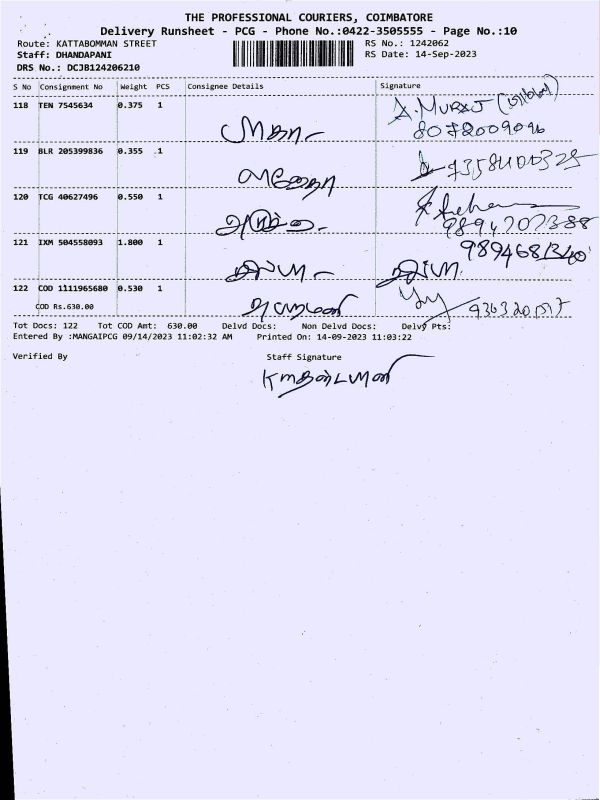 THE PROFESSIONAL COURIERS, COIMBATORE
Delivery Runsheet - PCG - Phone No.:0422-3505555 - Page No.:10
Route: KATTABOMMAN STREET RS No.: 1242062
Staff: DHANDAPANI RS Date: 14-Sep-2023
DRS No.: DCJB124206210
S No Consignment No Weight PCS Consignee Details Signature
118 TEN 7545634 0.375 1 A.MURALI
8072009096
119 BLR 205399836 0.355 1
120 TCG 40627496 0.550 1
9894707388
121 IXM 504558093 1.800 1
122 COD 1111965680 0.530 1
COD Rs.630.00
Tot Docs: 122 Tot COD Amt: 630.00 Delvd Docs: Non Delvd Docs: Delvd Pts:
Entered By :MANGAIPCG 09/14/2023 11:02:32 AM Printed On: 14-09-2023 11:03:22
Verified By Staff Signature